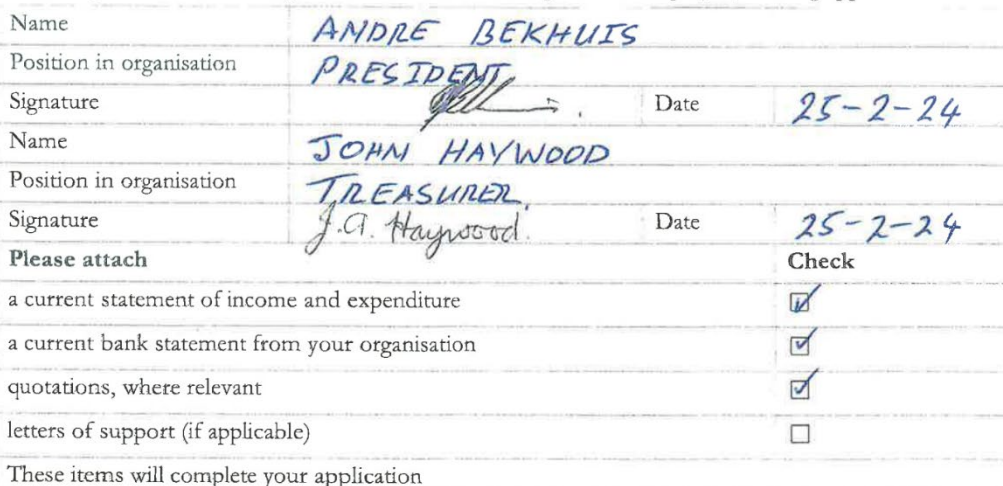 Name ANDRE BEKHUIS
Position in organisation PRESIDENT
Signature Date 25-2-24
Name JOHN HAYWOOD
Position in organisation TREASURER.
Signature J.A. Haywood. Date 25-2-24
Please attach Check
a current statement of income and expenditure
a current bank statement from your organisation
quotations, where relevant
letters of support (if applicable)
These items will complete your application